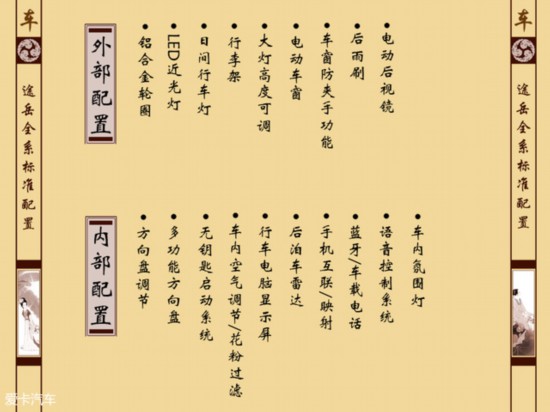 车
途岳全系标准配置
外部配置
•铝合金轮圈
•LED近光灯
•日间行车灯
•行李架
•大灯高度可调
•电动车窗
•车窗防夹手功能
•后雨刷
•电动后视镜
内部配置
•方向盘调节
•多功能方向盘
•无钥匙启动系统
•车内空气调节/花粉过滤
•行车电脑显示屏
•后泊车雷达
•手机互联/映射
•蓝牙/车载电话
•语音控制系统
•车内氛围灯
车
途岳全系标准配置
爱卡汽车